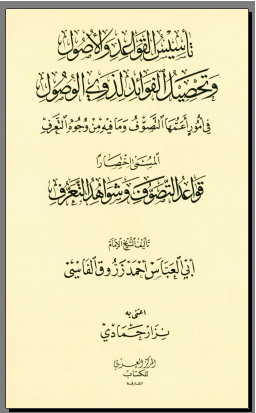 تأسيس القواعد والأصول
وتحصيل الفوائد لذوي الوصول
في أمور أعمها التصوف وما فيه من وجوه التعرف
المسمى اختصارا
قواعد التصوف وشواهد التعرف
تأليف الشيخ الإمام
أبي العباس أحمد زروق الفاسي
اعتنى به
نزار حمادي
المركز العربي
للكتاب
الشارقة